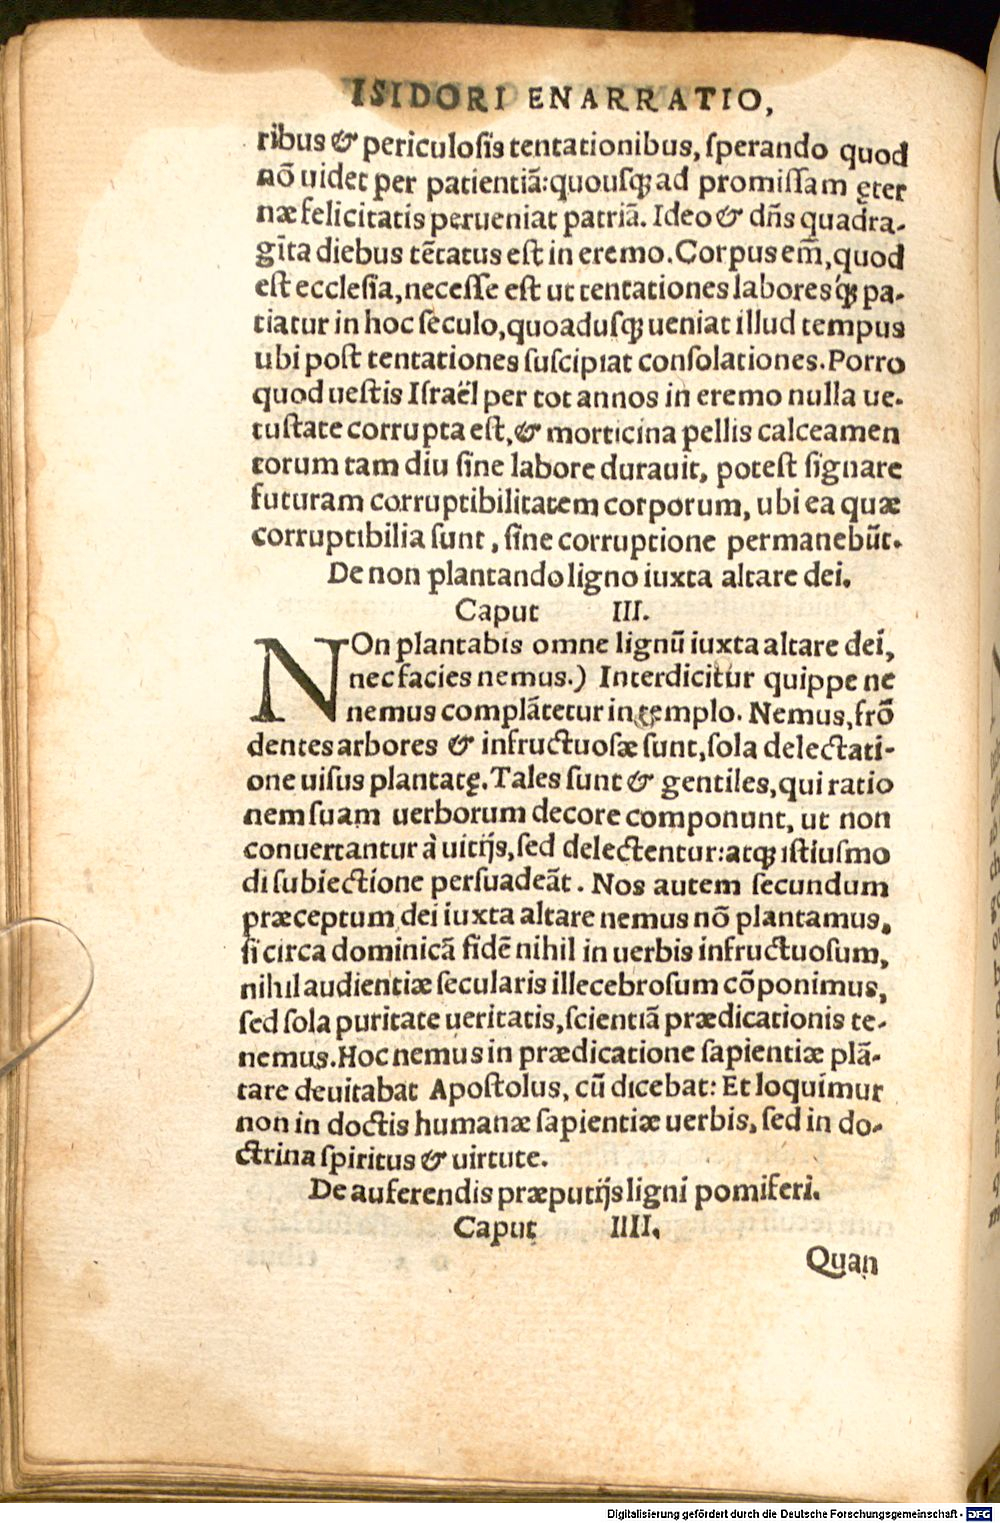 ISIDORI ENARRATIO,
ribus & periculosis tentationibus, sperando quod
nō uidet per patientiā: quousq; ad promissam ęter
næ felicitatis perueniat patriā. Ideo & dñs quadra-
gīta diebus tētatus est in eremo. Corpus em̄, quod
est ecclesia, necesse est ut tentationes labores q́; pa-
tiatur in hoc seculo, quoadusq; ueniat illud tempus
ubi post tentationes suscipiat consolationes. Porro
quod uestis Israël per tot annos in eremo nulla ue-
tustate corrupta est, & morticina pellis calceamen
torum tam diu sine labore durauit, potest signare
futuram corruptibilitatem corporum, ubi ea quæ
corruptibilia sunt, sine corruptione permanebūt.
De non plantando ligno iuxta altare dei.
Caput III.
NOn plantabis omne lignū iuxta altare dei,
nec facies nemus.) Interdicitur quippe ne
nemus complātetur in templo. Nemus, frō
dentes arbores & infructuosæ sunt, sola delectati-
one uisus plantatę. Tales sunt & gentiles, qui ratio
nem suam uerborum decore componunt, ut non
conuertantur à uitijs, sed delectentur: atq; istiusmo
di subiectione persuadeāt. Nos autem secundum
præceptum dei iuxta altare nemus nō plantamus,
si circa dominicā fidē nihil in uerbis infructuosum,
nihil audientiæ secularis illecebrosum cōponimus,
sed sola puritate ueritatis, scientiā prædicationis te-
nemus. Hoc nemus in prædicatione sapientiæ plā-
tare deuitabat Apostolus, cū dicebat: Et loquimur
non in doctis humanæ sapientiæ uerbis, sed in do-
ctrina spiritus & uirtute.
De auferendis præputijs ligni pomiferi.
Caput IIII.
Quan
Digitalisierung gefördert durch die Deutsche Forschungsgemeinschaft - DFG